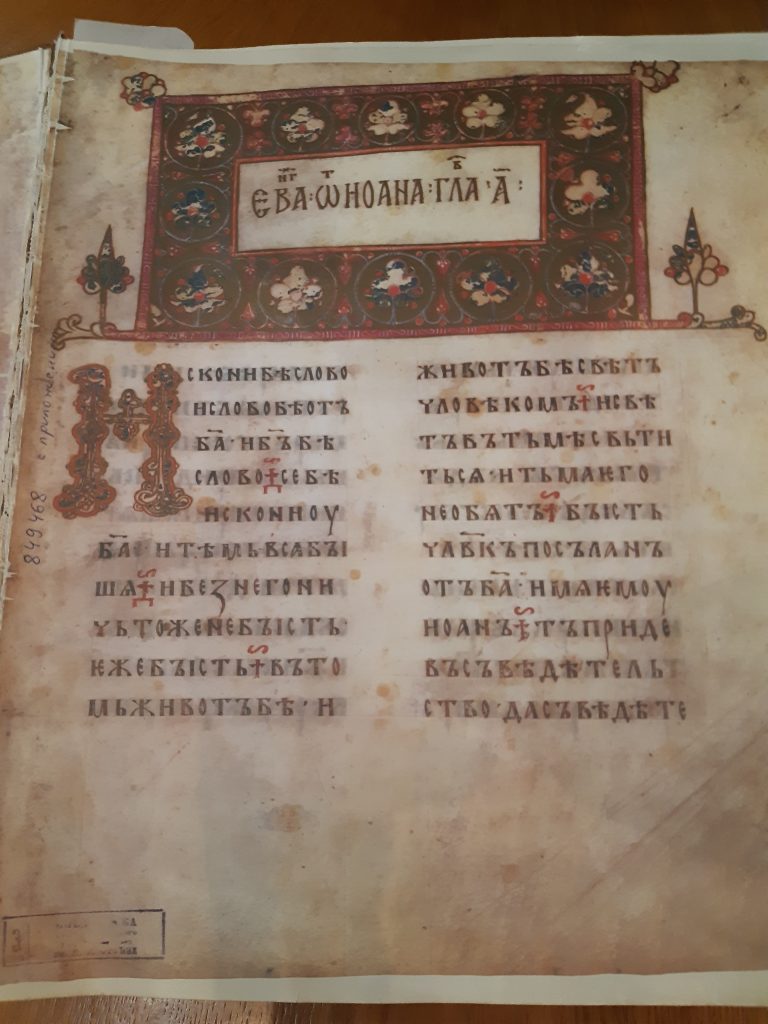 ЕВА҃НГ·Ѿ ИОАНА·ГЛА҃В·А҃:
ИСКОНИБѢСЛОВО
ИСЛОВОБѢОТЪ
БА҃·ИБ҃ЪБѢ
СЛОВО СЕБѢ
ИСКОНИОУ
БА҃·ИТѢМЬВСꙖБЪІ
ШѦ ИБЕЗНЕГОНИ
ЧЬТОЖЕНЕБЪІСТЬ·
ѤЖЕБЪІСТЬ ВЪТО
МЬЖИВОТЪБѢ·И
ЖИВОТЪБѢСВѢТЪ
ЧЛОВѢКОМЪ ИСВѢ
ТЪВЪТЬМѢСВЬТИ
ТЬСѦ·ИТЬМАѤГО
НЕОБѦТЪ БЪІСТЬ
ЧЛ҃ВКЪПОСЪЛАНЪ
ОТЪБА҃·ИМѦѤМОУ
ИОАНЪ ТЪПРИДЕ
ВЪСЪВѢДѢТЕЛЬ
СТВО·ДАСЪВѢДѢТЕ
849468